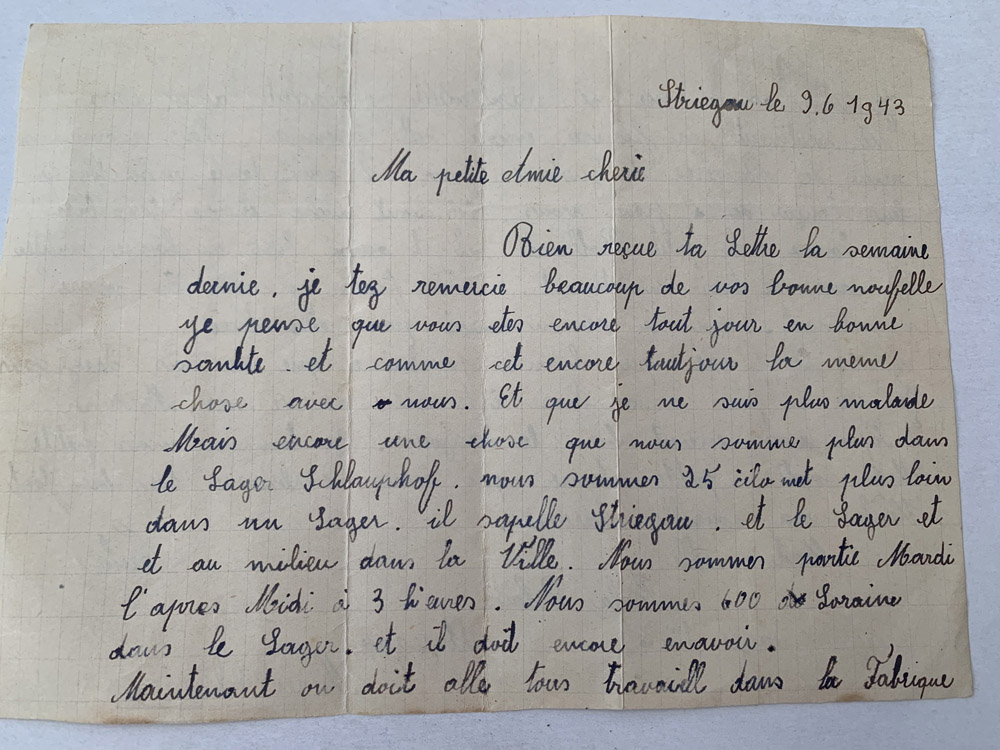 Striegau le 9.6 1943
Ma petite Amie cherie
Bien reçue ta Lettre la semaine
dernie. je tez remercie beaucoup de vos bonne noufelle
ye pense que vous etes encore tout jour en bonne
sankte. et comme cet encore tautjour la meme
chose avec nous. Et que je ne suis plus malade
Mais encore une chose que nous somme plus dans
le Lager Schlauphof. nous sommes 25 cilo met plus loin
dans un Lager. il sapelle Striegau. et le Lager et
et au milieu dans la Ville. Nous sommes partie Mardi
l'apres Midi à 3 heures. Nous sommes 600 Loraine
dans le Lager. et il doit encore enavoir.
Maintenant on doit alle tous travaill dans la Fabrique